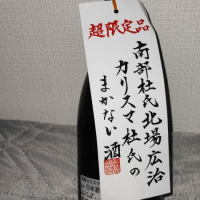 超限定品
南部杜氏北場広治
カリスマ杜氏の
まかない酒